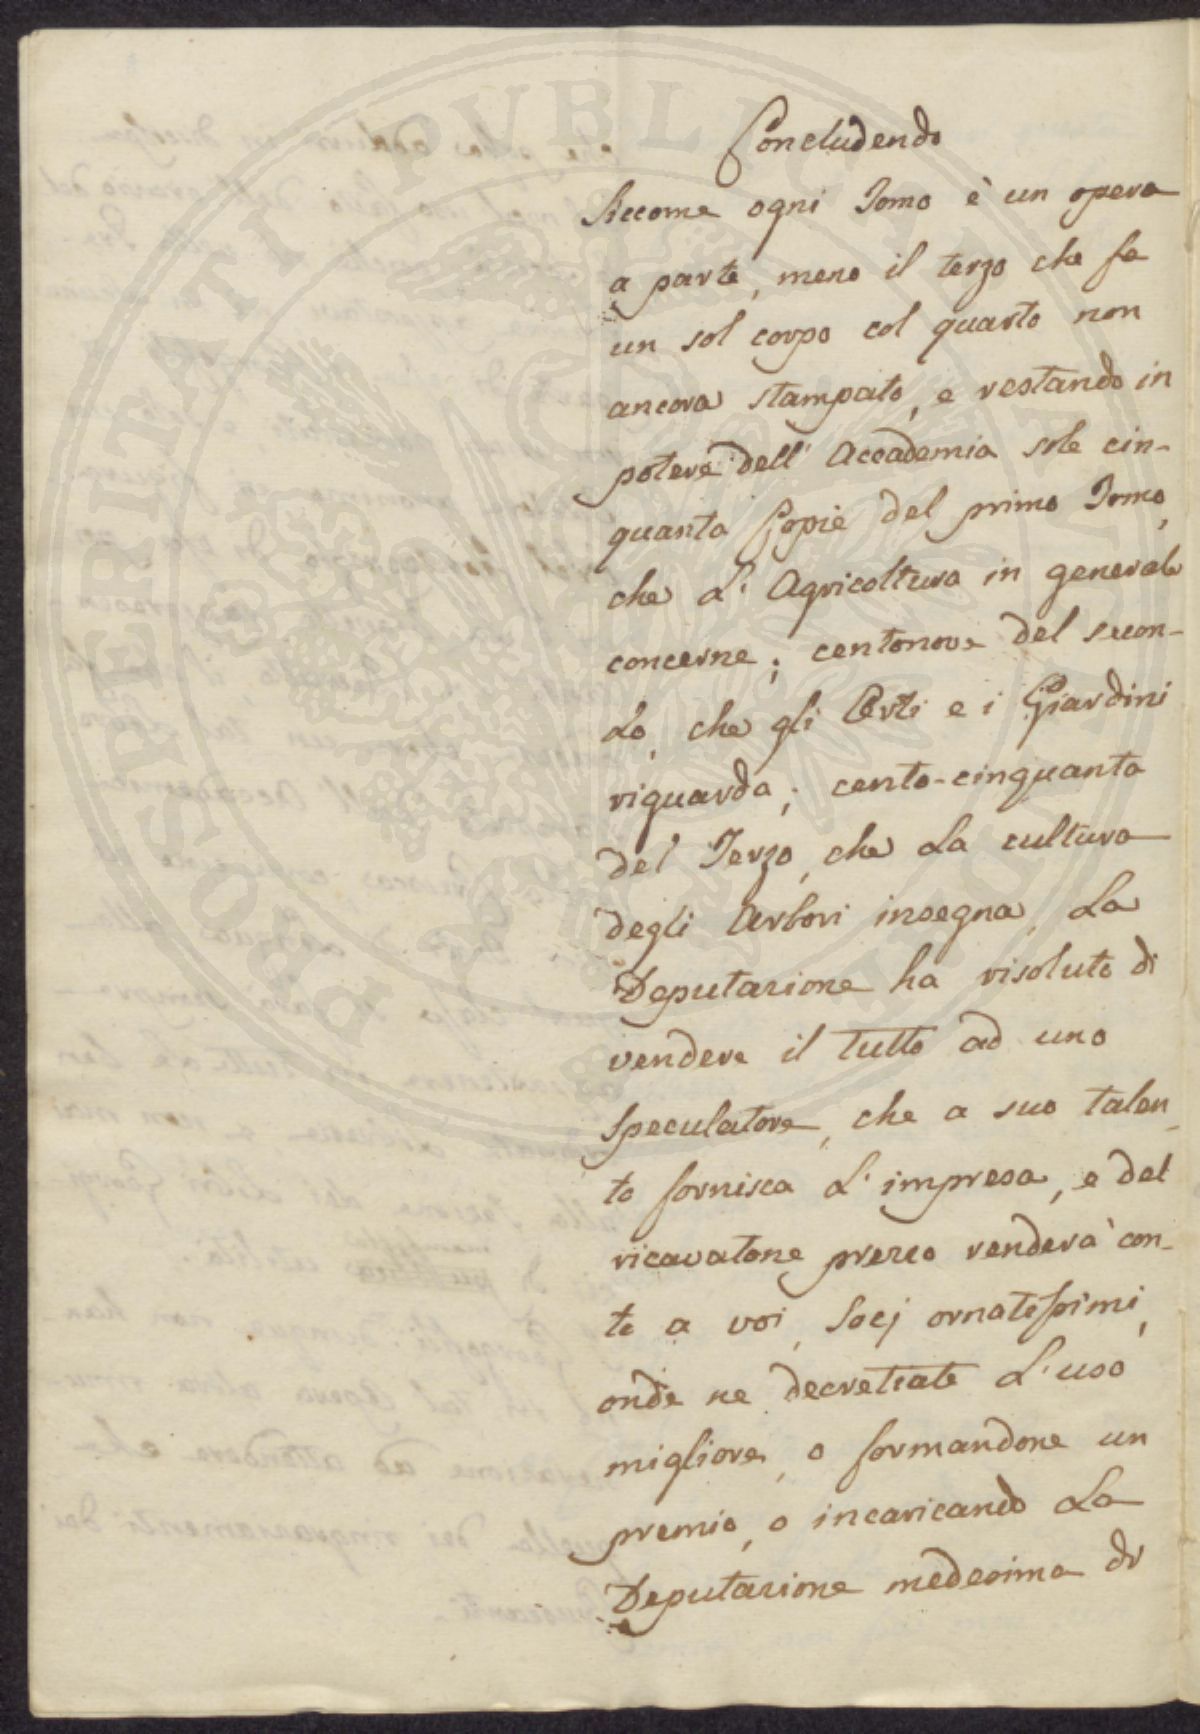 Concludendo
Siccome ogni Tomo è un opera
a parte, meno il terzo che fa
un sol corpo col quarto non
ancora stampato, e restando in
potere dell' Accademia sole cin-
quanta Copie del primo Tomo,
che l' Agricoltura in generale
concerne; centonove del secon-
do, che gli Orti e i Giardini
riguarda; cento-cinquanta
del Terzo, che la cultura
degli Arbori insegna, la
Deputazione ha risoluto di
vendere il tutto ad uno
Speculatore, che a suo talen
to fornisca l' impresa, e del
ricavatone prezzo renderà con-
to a voi, Socj ornatissimi,
onde ne decretiate l' uso
migliore, o formandone un
premio, o incaricando la
Deputazione medesima di
PROSPERITATI PVBLICAE AVGENDAE